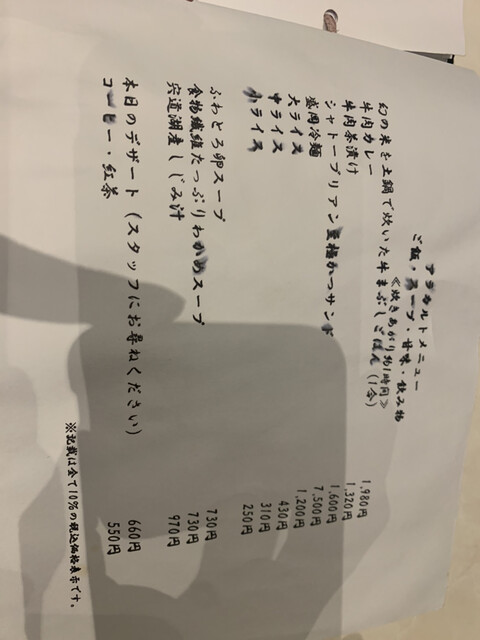 アラカルトメニュー
ご飯・スープ・甘味・飲み物
≪炊きあがり約1時間≫
幻の米を土鍋で炊いた牛まぶしごはん(1合) 1,980円
牛肉カレー 1,320円
牛肉茶漬け 1,600円
シャトーブリアン至極かつサンド 7,500円
盛岡冷麺 1,200円
大ライス 430円
中ライス 310円
小ライス 250円
ふわとろ卵スープ 730円
食物繊維たっぷりわかめスープ 730円
宍道湖産しじみ汁 970円
本日のデザート(スタッフにお尋ねください) 660円
コーヒー・紅茶 550円
※記載は全て10%の税込価格表示です。